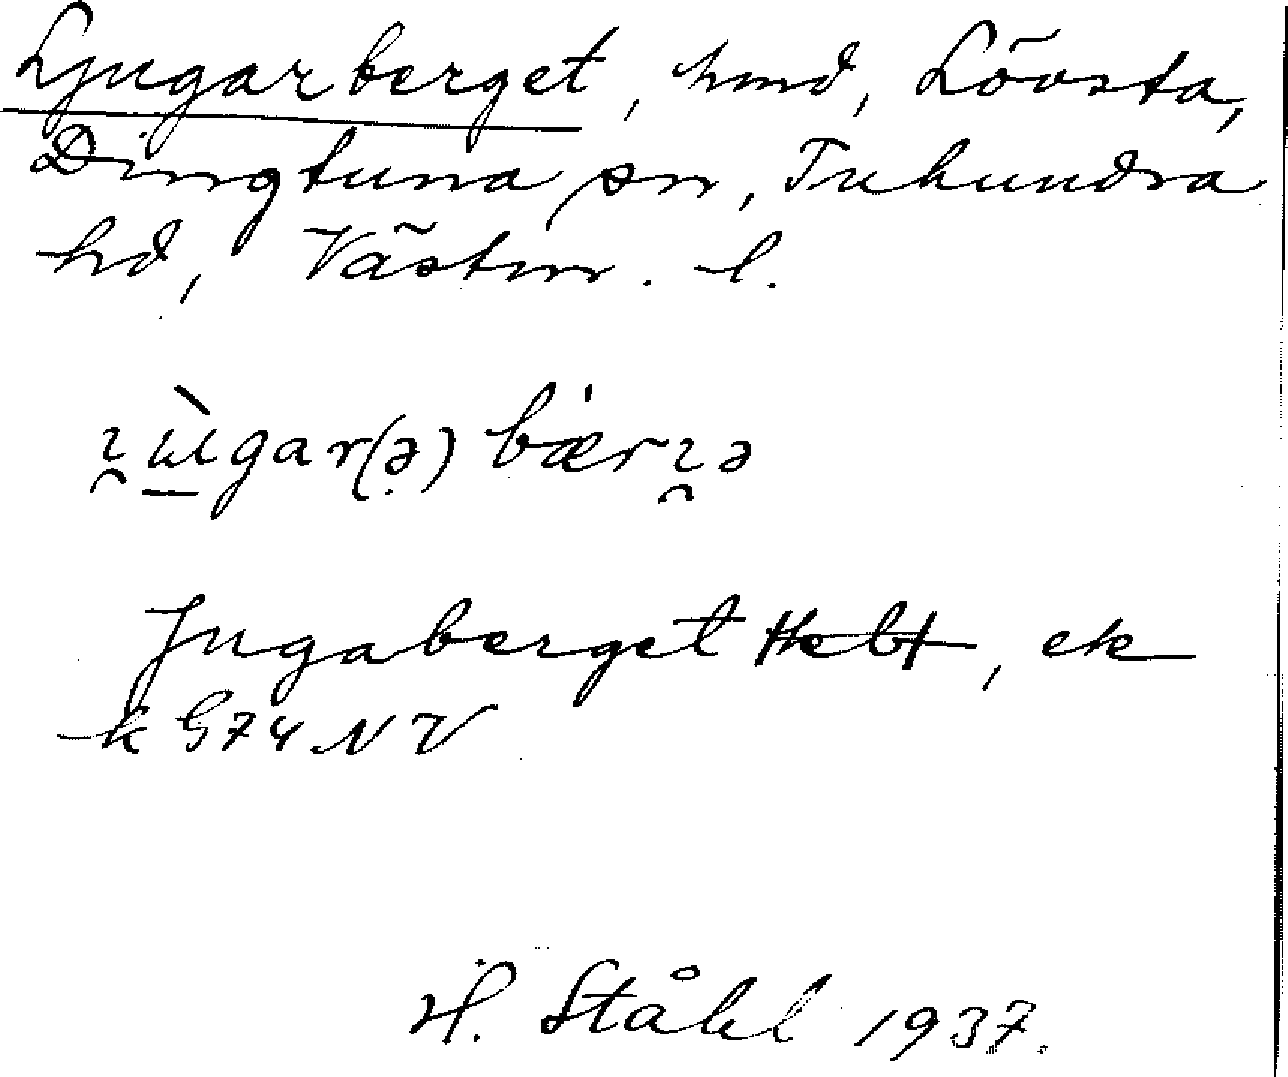 Ljugarberget, hmd, Lövsta,
Dingtuna sn, Tuhundra
hd, Västm. l.
gar(ə) bær
Jugaberget, ek
k 574 NV
H. Ståhl 1937.